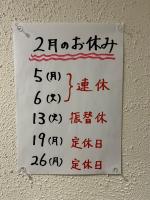 2月のお休み
5(月)
6(火)
連休
13(火) 振替休
19(月) 定休日
26(月) 定休日